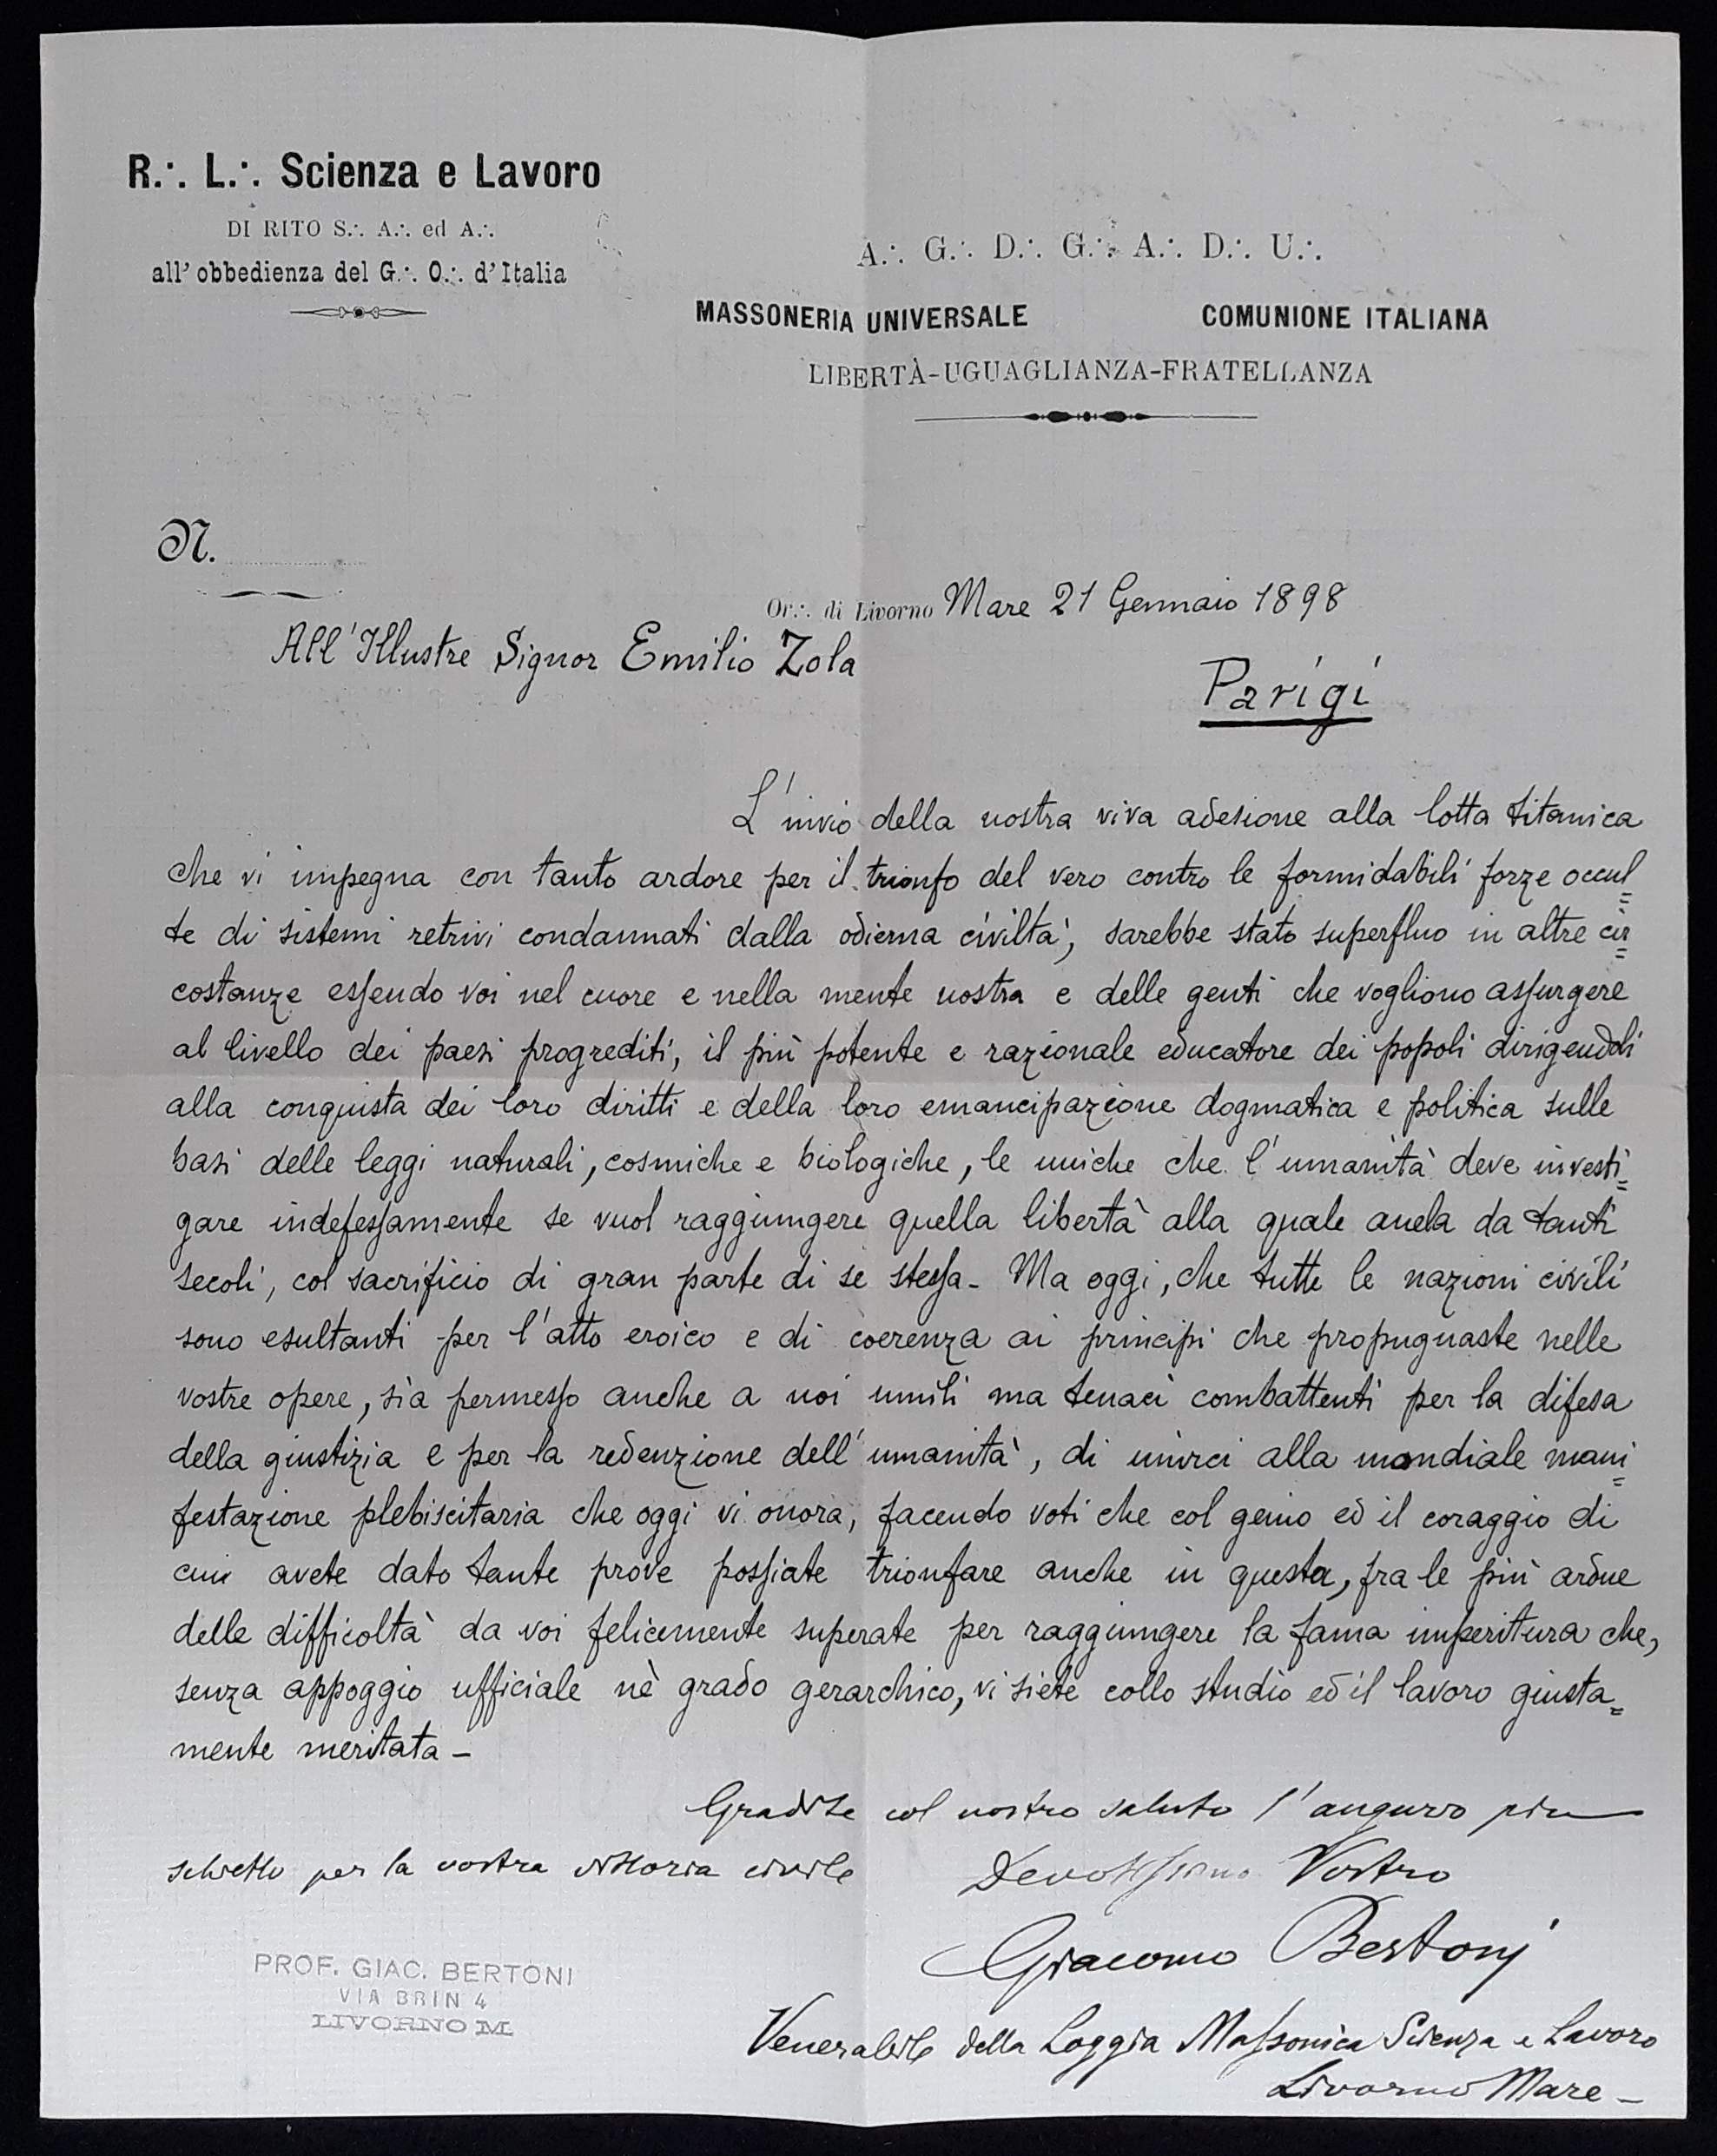 R∴ L∴ Scienza e Lavoro
DI RITO S∴ A∴ ed A∴
all' obbedienza del G∴ O∴ d'Italia
A∴ G∴ D∴ G∴ A∴ D∴ U∴
MASSONERIA UNIVERSALE COMUNIONE ITALIANA
LIBERTÀ-UGUAGLIANZA-FRATELLANZA
N.
Or∴ di Livorno Mare 21 Gennaio 1898
All'Illustre Signor Emilio Zola
Parigi
L'invio della nostra viva adesione alla lotta titanica
che vi impegna con tanto ardore per il trionfo del vero contro le formidabili forze occul=
te di sistemi retrivi condannati dalla odierna civiltà, sarebbe stato superfluo in altre cir=
costanze essendo voi nel cuore e nella mente nostra e delle genti che vogliono assurgere
al livello dei paesi progrediti, il più potente e razionale educatore dei popoli dirigendoli
alla conquista dei loro diritti e della loro emancipazione dogmatica e politica sulle
basi delle leggi naturali, cosmiche e biologiche, le uniche che l'umanità deve investi=
gare indefessamente se vuol raggiungere quella libertà alla quale anela da tanti
secoli, col sacrificio di gran parte di se stessa - Ma oggi, che tutte le nazioni civili
sono esultanti per l'atto eroico e di coerenza ai principi che propugnaste nelle
vostre opere, sia permesso anche a noi umili ma tenaci combattenti per la difesa
della giustizia e per la redenzione dell'umanità, di unirci alla mondiale mani=
festazione plebiscitaria che oggi vi onora, facendo voti che col genio ed il coraggio di
cui avete dato tante prove possiate trionfare anche in questa, fra le più ardue
delle difficoltà da voi felicemente superate per raggiungere la fama imperitura che,
senza appoggio ufficiale nè grado gerarchico, vi siete collo studio ed il lavoro giusta=
mente meritata -
Gradite col nostro saluto l'augurio più
schietto per la vostra vittoria civile
Devotissimo Vostro
Giacomo Bertoni
PROF. GIAC. BERTONI
VIA BRIN 4
LIVORNO M.
Venerabile della Loggia Massonica Scienza e Lavoro
Livorno Mare -